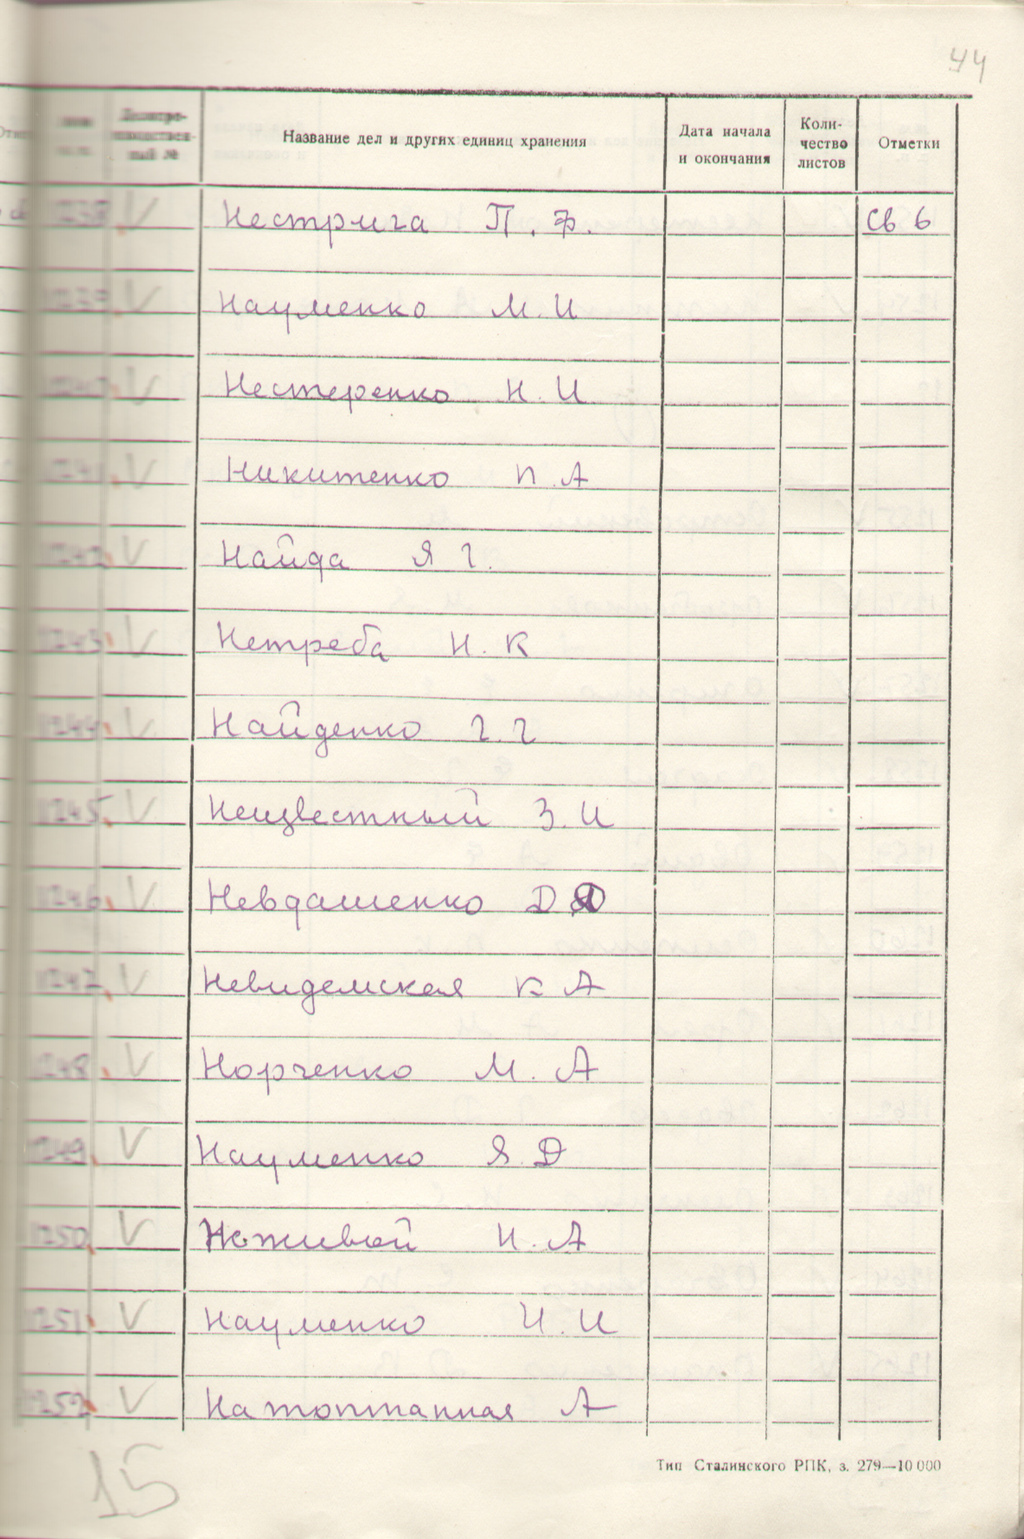 44
Делопро-
изводствен-
ный №
Название дел и других единиц хранения
Дата начала
и окончания
Коли-
чество
листов
Отметки
1238 V Нестрига П. Ф. Св 6
1239 V Науменко М. И
1240 V Нестеренко Н. И.
1241 V Никитенко П А
1242 V Найда Я Г.
1243 V Нетреба И. К
1244 V Найденко Г. Г
1245 V Неизвестный З. И
1246 V Невдашенко Д
1247 V Невидемская К А
1248 V Норченко М. А
1249 V Науменко Я. Д
1250 V Неживой И. А
1251 V Науменко И. И
1252 V Натоптанная А
15
Тип Сталинского РПК, з. 279—10 000